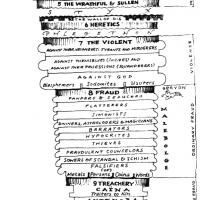 5 THE WRATHFUL & SULLEN
THE WALL OF DIS
6 HERETICS
PHLEGETHON
7 THE VIOLENT
AGAINST NEIGHBORS: TYRANTS AND MURDERERS
AGAINST THEMSELVES (SUICIDES) AND
AGAINST GOD
Blasphemers Sodomites Usurers
8 FRAUD
PANDERS & SEDUCERS
FLATTERERS
SIMONISTS
DIVINERS, ASTROLOGERS & MAGICIANS
BARRATORS
HYPOCRITES
THIEVES
FRAUDULENT COUNSELORS
SOWERS OF SCANDAL & SCHISM
FALSIFIERS
Metals Persons Coins Words
9 TREACHERY
CAINA
Traitors to Kin
GERYON
MALEBOLGE